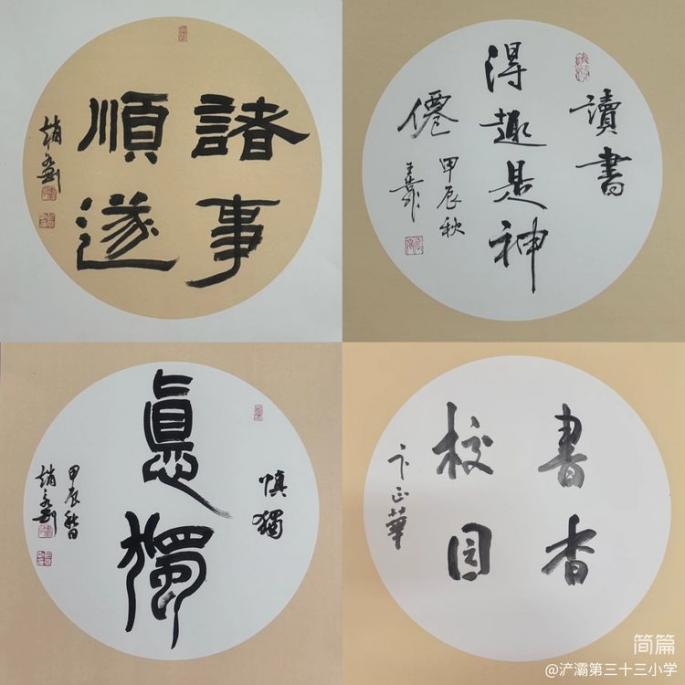 諸事
順遂
趙
讀書
得趣是神
僊
甲辰秋
慎獨
慎獨
甲辰秋日
趙
書香
校园
卞正華
简篇
@浐灞第三十三小学